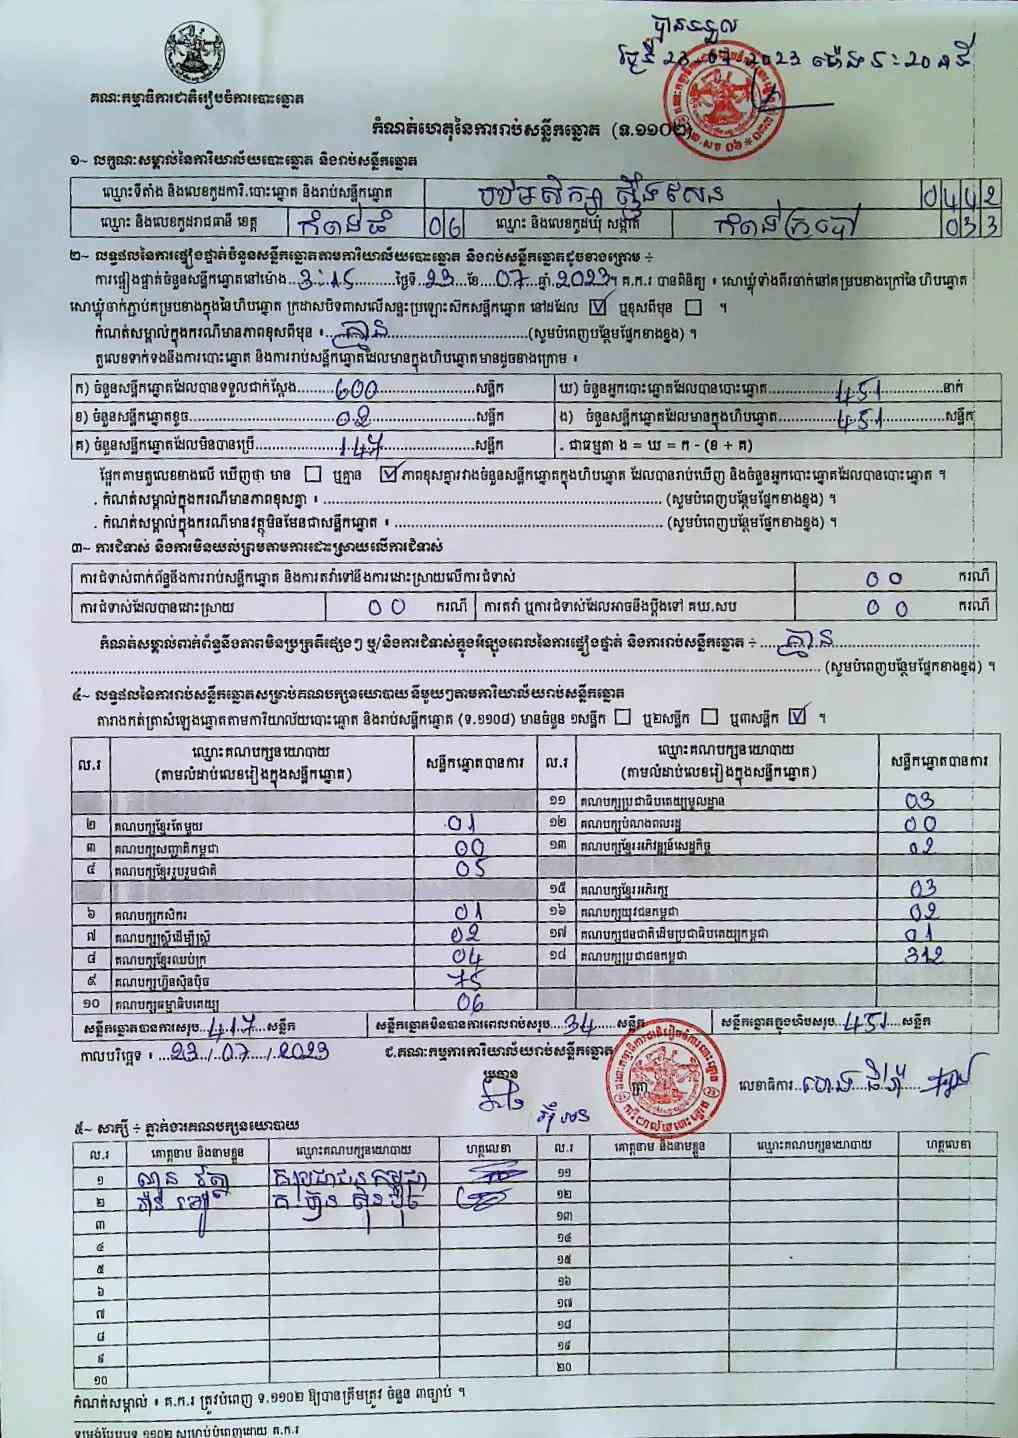 បានទទួល
ថ្ងៃទី 23-07-2023 ម៉ោង 5:20 នាទី
គណៈកម្មាធិការជាតិរៀបចំការបោះឆ្នោត
កំណត់ហេតុនៃការរាប់សន្លឹកឆ្នោត (ទ.១១០២)
១~ លក្ខណៈសម្គាល់នៃការិយាល័យបោះឆ្នោត និងរាប់សន្លឹកឆ្នោត
ឈ្មោះទីតាំង និងលេខកូដការិ.បោះឆ្នោត និងរាប់សន្លឹកឆ្នោត បឋមសិក្សា ស្ទឹងសែន 0442
ឈ្មោះ និងលេខកូដរាជធានី ខេត្ត កំពង់ធំ 06 ឈ្មោះ និងលេខកូដឃុំ សង្កាត់ កំពង់ក្របៅ 033
២~ លទ្ធផលនៃការផ្ទៀងផ្ទាត់ចំនួនសន្លឹកឆ្នោតតាមការិយាល័យបោះឆ្នោត និងរាប់សន្លឹកឆ្នោតដូចខាងក្រោម ÷
ការផ្ទៀងផ្ទាត់ចំនួនសន្លឹកឆ្នោតនៅម៉ោង..3:15..ថ្ងៃទី..23..ខែ..07..ឆ្នាំ.2023។ គ.ក.រ បានពិនិត្យ ៖ សោឃ្លុំទាំងពីរចាក់នៅគម្របខាងក្រៅនៃហិបឆ្នោត
សោឃ្លុំចាក់ភ្ជាប់គម្របខាងក្នុងនៃហិបឆ្នោត ក្រដាសបិទពាសលើសន្ទះប្រឡោះស៊កសន្លឹកឆ្នោត នៅដដែល ☑ ឬខុសពីមុន ☐ ។
កំណត់សម្គាល់ក្នុងករណីមានភាពខុសពីមុន ៖ គ្មាន (សូមបំពេញបន្ថែមផ្នែកខាងខ្នង) ។
តួលេខទាក់ទងនឹងការបោះឆ្នោត និងការរាប់សន្លឹកឆ្នោតដែលមានក្នុងហិបឆ្នោតមានដូចខាងក្រោម ៖
ក) ចំនួនសន្លឹកឆ្នោតដែលបានទទួលជាក់ស្តែង 600 សន្លឹក ឃ) ចំនួនអ្នកបោះឆ្នោតដែលបានបោះឆ្នោត 451 នាក់
ខ) ចំនួនសន្លឹកឆ្នោតខូច 02 សន្លឹក ង) ចំនួនសន្លឹកឆ្នោតដែលមានក្នុងហិបឆ្នោត 451 សន្លឹក
គ) ចំនួនសន្លឹកឆ្នោតដែលមិនបានប្រើ 147 សន្លឹក . ជាធម្មតា ង = ឃ = ក - (ខ + គ)
ផ្អែកតាមតួលេខខាងលើ ឃើញថា មាន ☐ ឬគ្មាន ☑ ភាពខុសគ្នារវាងចំនួនសន្លឹកឆ្នោតក្នុងហិបឆ្នោត ដែលបានរាប់ឃើញ និងចំនួនអ្នកបោះឆ្នោតដែលបានបោះឆ្នោត ។
. កំណត់សម្គាល់ក្នុងករណីមានភាពខុសគ្នា ៖ (សូមបំពេញបន្ថែមផ្នែកខាងខ្នង) ។
. កំណត់សម្គាល់ក្នុងករណីមានវត្ថុមិនមែនជាសន្លឹកឆ្នោត ៖ (សូមបំពេញបន្ថែមផ្នែកខាងខ្នង) ។
៣~ ការជំទាស់ និងការមិនយល់ព្រមតាមការដោះស្រាយលើការជំទាស់
ការជំទាស់ពាក់ព័ន្ធនឹងការរាប់សន្លឹកឆ្នោត និងការតវ៉ាទៅនឹងការដោះស្រាយលើការជំទាស់ 00 ករណី
ការជំទាស់ដែលបានដោះស្រាយ 00 ករណី ការតវ៉ា ឬការជំទាស់ដែលអាចនឹងប្តឹងទៅ គឃ.សប 00 ករណី
កំណត់សម្គាល់ពាក់ព័ន្ធនឹងភាពមិនប្រក្រតីផ្សេងៗ ឬ/និងការជំទាស់ក្នុងអំឡុងពេលនៃការផ្ទៀងផ្ទាត់ និងការរាប់សន្លឹកឆ្នោត ÷ គ្មាន
(សូមបំពេញបន្ថែមផ្នែកខាងខ្នង) ។
៤~ លទ្ធផលនៃការរាប់សន្លឹកឆ្នោតសម្រាប់គណបក្សនយោបាយ នីមួយៗតាមការិយាល័យរាប់សន្លឹកឆ្នោត
តារាងកត់ត្រាសំឡេងឆ្នោតតាមការិយាល័យបោះឆ្នោត និងរាប់សន្លឹកឆ្នោត (ទ.១១០៨) មានចំនួន ១សន្លឹក ☐ ឬ២សន្លឹក ☐ ឬ៣សន្លឹក ☑ ។
ល.រ ឈ្មោះគណបក្សនយោបាយ (តាមលំដាប់លេខរៀងក្នុងសន្លឹកឆ្នោត) សន្លឹកឆ្នោតបានការ ល.រ ឈ្មោះគណបក្សនយោបាយ (តាមលំដាប់លេខរៀងក្នុងសន្លឹកឆ្នោត) សន្លឹកឆ្នោតបានការ
១១ គណបក្សប្រជាធិបតេយ្យមូលដ្ឋាន 03
២ គណបក្សខ្មែរតែមួយ 01 ១២ គណបក្សបំណងពលរដ្ឋ 00
៣ គណបក្សសញ្ជាតិកម្ពុជា 00 ១៣ គណបក្សខ្មែរអភិវឌ្ឍន៍សេដ្ឋកិច្ច 02
៤ គណបក្សខ្មែររួបរួមជាតិ 05
១៥ គណបក្សខ្មែរអភិរក្ស 03
៦ គណបក្សកសិករ 01 ១៦ គណបក្សយុវជនកម្ពុជា 02
៧ គណបក្សស្ត្រីដើម្បីស្ត្រី 02 ១៧ គណបក្សជនជាតិដើមប្រជាធិបតេយ្យកម្ពុជា 01
៨ គណបក្សខ្មែរឈប់ក្រ 04 ១៨ គណបក្សប្រជាជនកម្ពុជា 312
៩ គណបក្សហ្វ៊ុនស៊ិនប៉ិច 75
១០ គណបក្សធម្មាធិបតេយ្យ 06
សន្លឹកឆ្នោតបានការសរុប..417..សន្លឹក សន្លឹកឆ្នោតមិនបានការពេលរាប់សរុប..34..សន្លឹក សន្លឹកឆ្នោតក្នុងហិបសរុប..451..សន្លឹក
កាលបរិច្ឆេទ ៖ 23/07/2023 ជ.គណៈកម្មការការិយាល័យរាប់សន្លឹកឆ្នោត
ប្រធាន
លេខាធិការ
៥~ សាក្សី ÷ ភ្នាក់ងារគណបក្សនយោបាយ
ល.រ គោត្តនាម និងនាមខ្លួន ឈ្មោះគណបក្សនយោបាយ ហត្ថលេខា ល.រ គោត្តនាម និងនាមខ្លួន ឈ្មោះគណបក្សនយោបាយ ហត្ថលេខា
១ គ.ប្រជាជនកម្ពុជា ១១
២ គ.ហ៊្វុន ស៊ិនប៉ិច ១២
៣ ១៣
៤ ១៤
៥ ១៥
៦ ១៦
៧ ១៧
៨ ១៨
៩ ១៩
១០ ២០
កំណត់សម្គាល់ ៖ គ.ក.រ ត្រូវបំពេញ ទ.១១០២ ឱ្យបានត្រឹមត្រូវ ចំនួន ៣ច្បាប់ ។
ទម្រង់បែបបទ ១១០២ សម្រាប់បំពេញដោយ គ.ក.រ